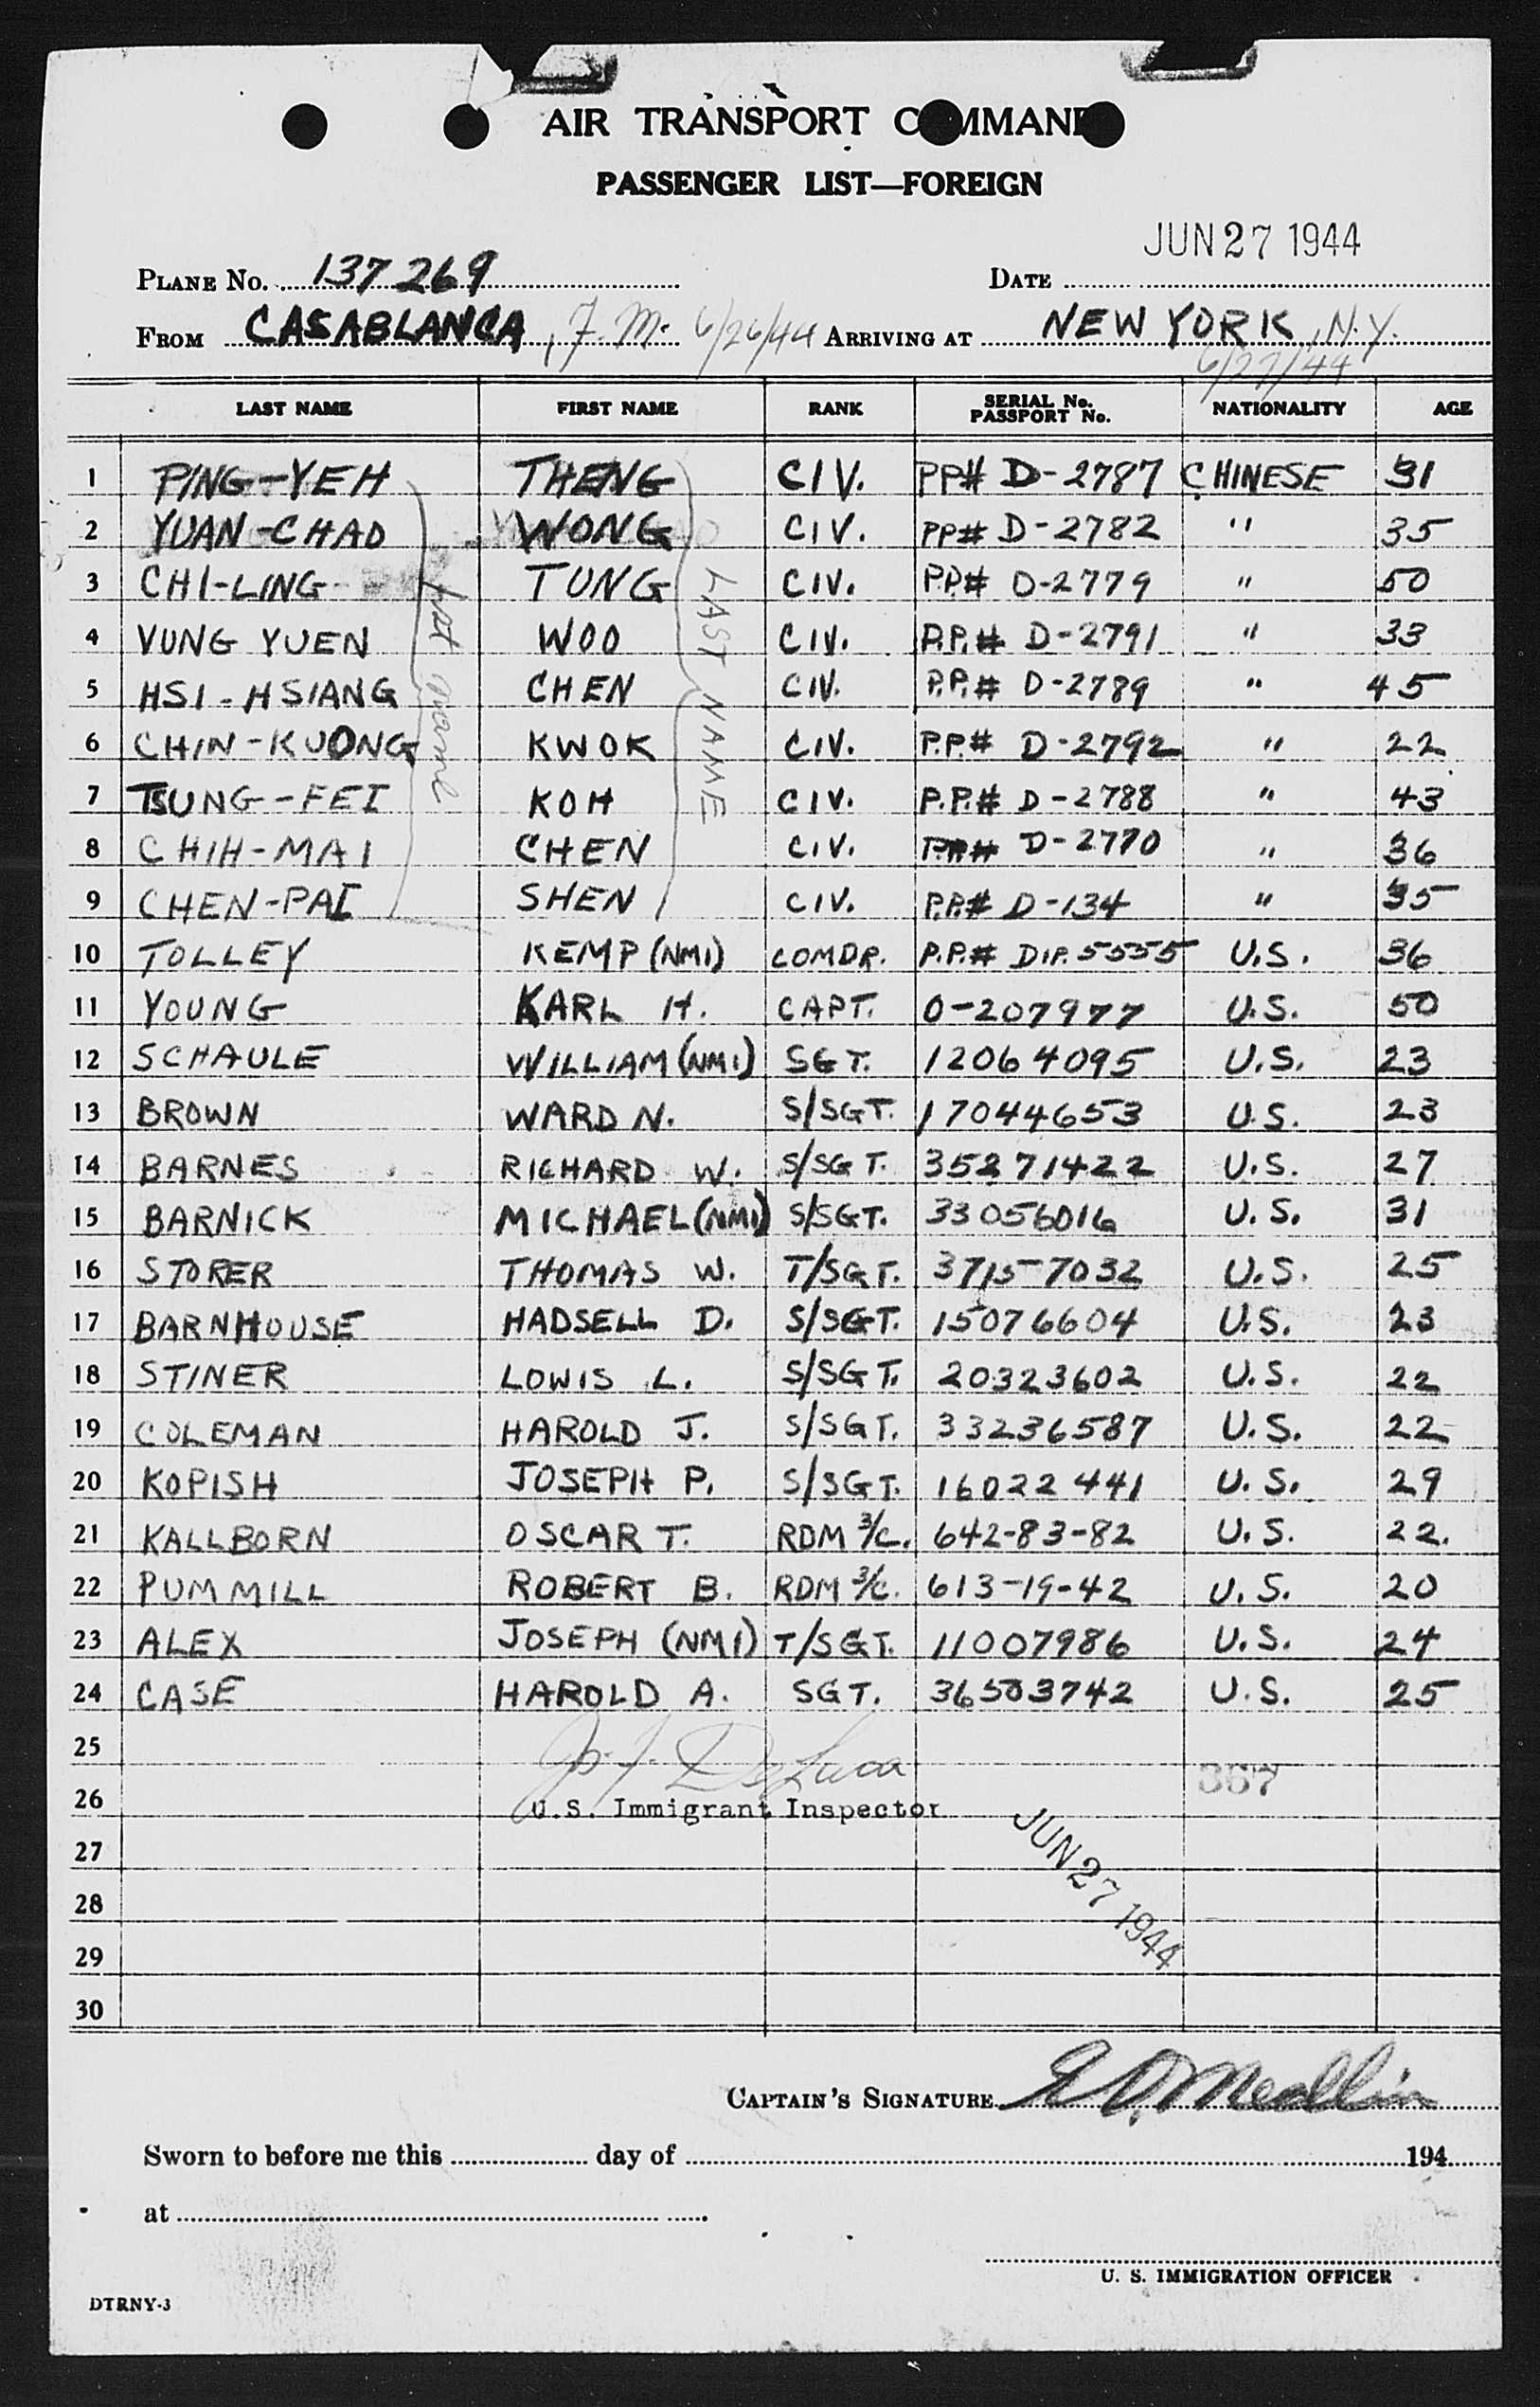 AIR TRANSPORT COMMAND
PASSENGER LIST—FOREIGN
JUN 27 1944
PLANE No. 137269 DATE
FROM CASABLANCA, F.M. 6/26/44 ARRIVING AT NEW YORK, N.Y.
6/27/44
LAST NAME FIRST NAME RANK SERIAL No. PASSPORT No. NATIONALITY AGE
1 PING-YEH THENG CIV. PP# D-2787 CHINESE 31
2 YUAN-CHAO WONG CIV. PP# D-2782 " 35
3 CHI-LING TUNG CIV. P.P.# D-2779 " 50
4 VUNG YUEN WOO CIV. P.P.# D-2791 " 33
5 HSI-HSIANG CHEN CIV. P.P.# D-2789 " 45
6 CHIN-KUONG KWOK CIV. P.P.# D-2792 " 22
7 TSUNG-FEI KOH CIV. P.P.# D-2788 " 43
8 CHIH-MAI CHEN CIV. P.P.# D-2770 " 36
9 CHEN-PAI SHEN CIV. P.P.# D-134 " 35
1st name
LAST NAME
10 TOLLEY KEMP (NMI) COMDR. P.P.# DIP. 5555 U.S. 36
11 YOUNG KARL H. CAPT. O-207977 U.S. 50
12 SCHAULE WILLIAM (NMI) SGT. 12064095 U.S. 23
13 BROWN WARD N. S/SGT. 17044653 U.S. 23
14 BARNES RICHARD W. S/SGT. 35271422 U.S. 27
15 BARNICK MICHAEL (NMI) S/SGT. 33056016 U.S. 31
16 STORER THOMAS W. T/SGT. 37157032 U.S. 25
17 BARNHOUSE HADSELL D. S/SGT. 15076604 U.S. 23
18 STINER LOWIS L. S/SGT. 20323602 U.S. 22
19 COLEMAN HAROLD J. S/SGT. 33236587 U.S. 22
20 KOPISH JOSEPH P. S/SGT. 16022441 U.S. 29
21 KALLBORN OSCAR T. RDM 3/C. 642-83-82 U.S. 22.
22 PUMMILL ROBERT B. RDM 3/C. 613-19-42 U.S. 20
23 ALEX JOSEPH (NMI) T/SGT. 11007986 U.S. 24
24 CASE HAROLD A. SGT. 36503742 U.S. 25
25
367
26 U.S. Immigrant Inspector
JUN 27 1944
27
28
29
30
CAPTAIN'S SIGNATURE
Sworn to before me this day of 194
at
U. S. IMMIGRATION OFFICER
DTRNY-3